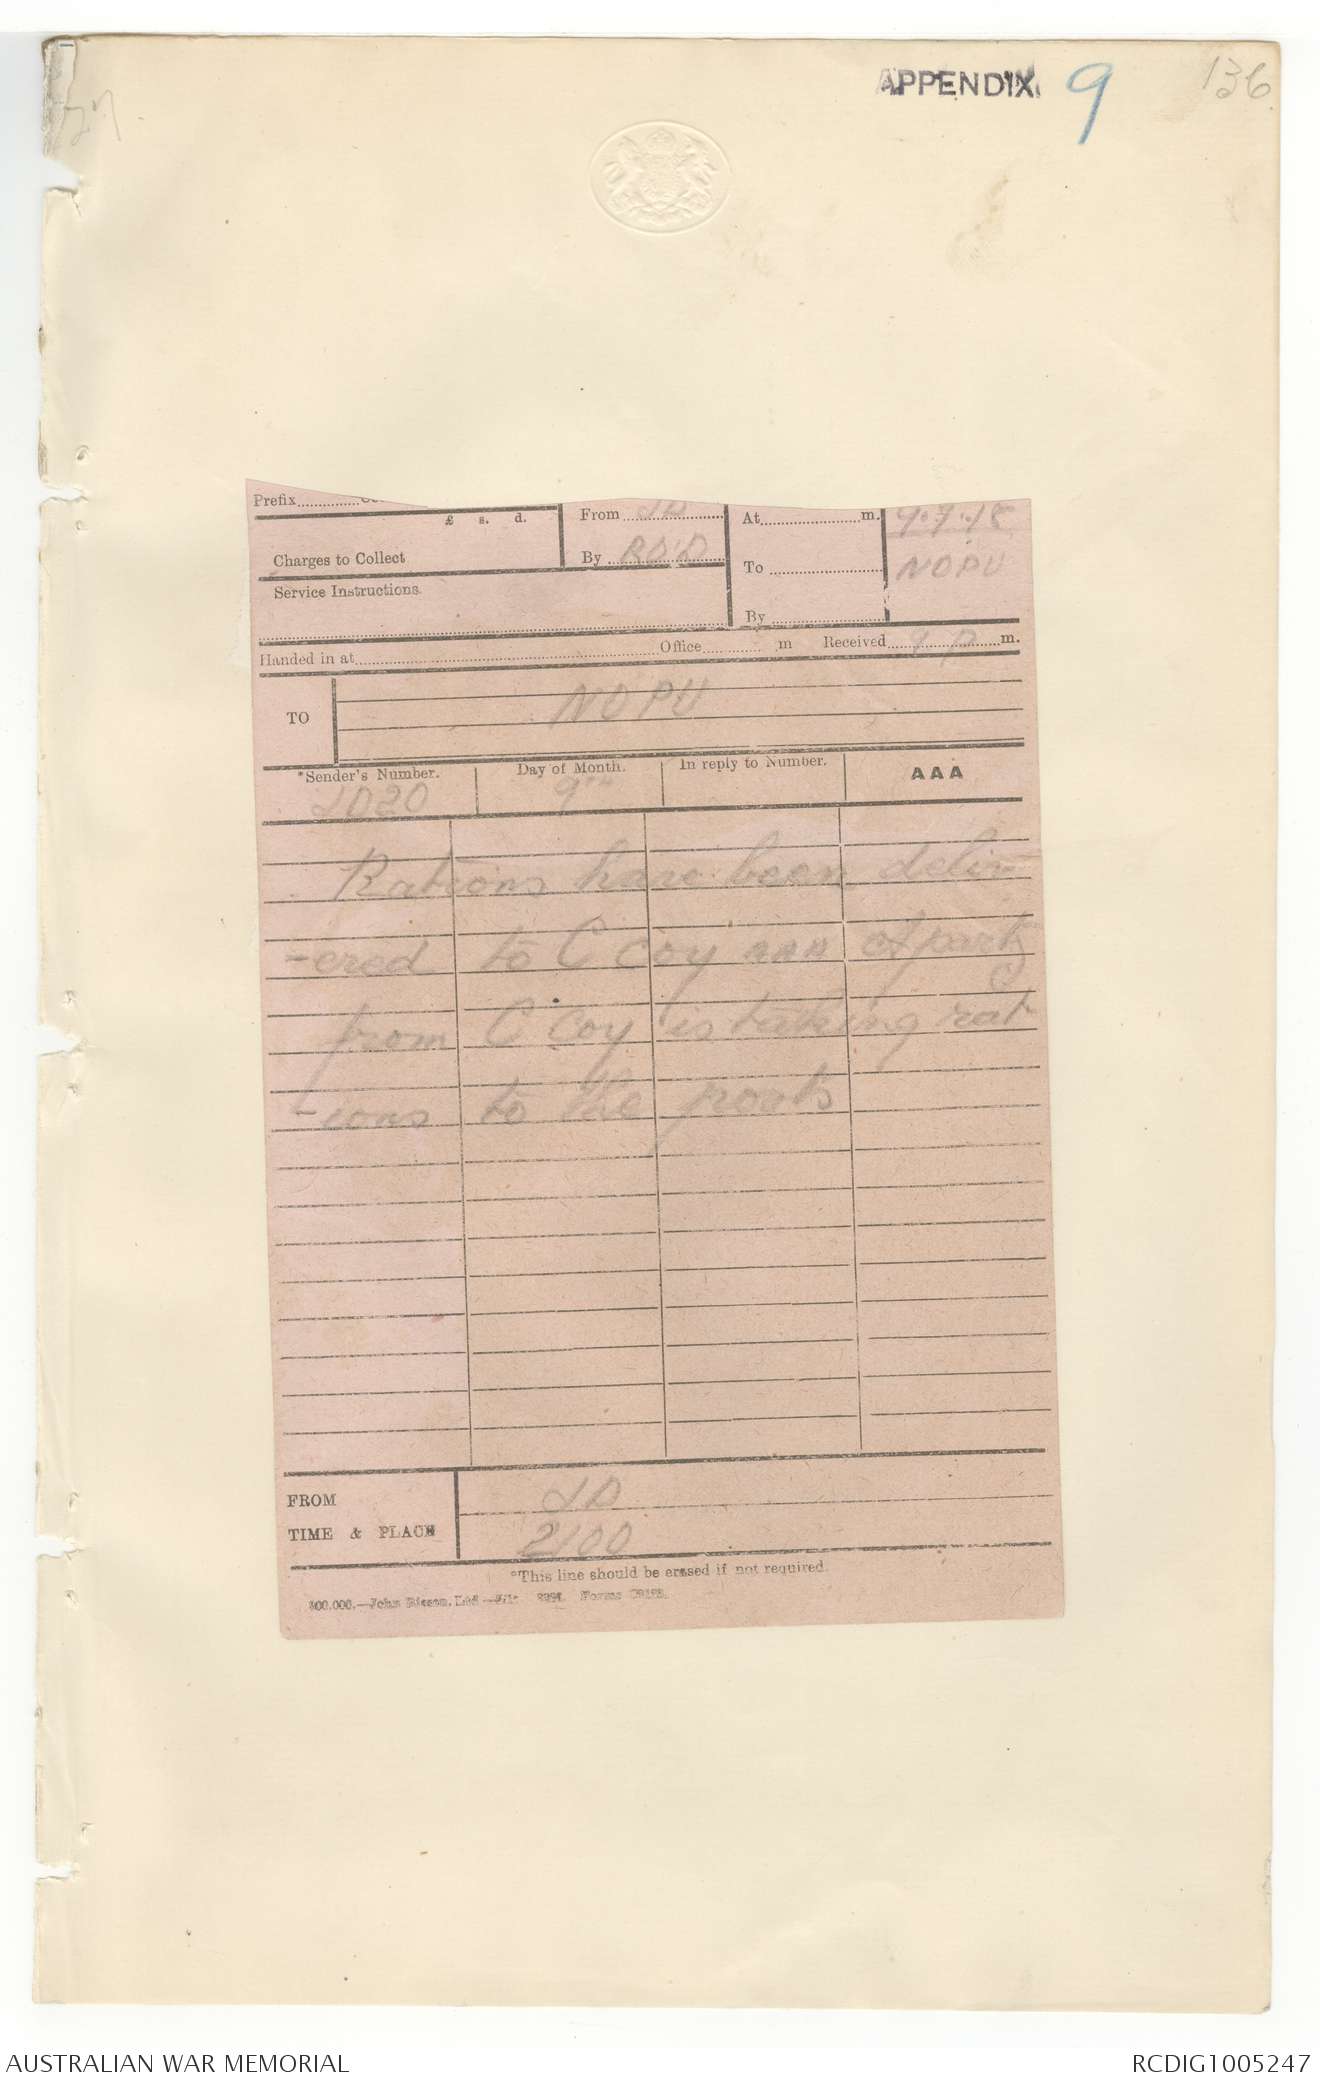 APPENDIX 9
136
Prefix
£ s. d.
Charges to Collect
Service Instructions.
From JD
By RO'D
At m.
To
By
9.7.18
NOPU
Handed in at Office m Received 9 P m.
TO NOPU
*Sender's Number. Day of Month. In reply to Number. AAA
JD20 9th
Rations have been deliv
-ered to C coy AAA A party
from C coy is taking rat
-ions to the posts
FROM JD
TIME & PLACE 2100
*This line should be erased if not required.
AUSTRALIAN WAR MEMORIAL
RCDIG1005247